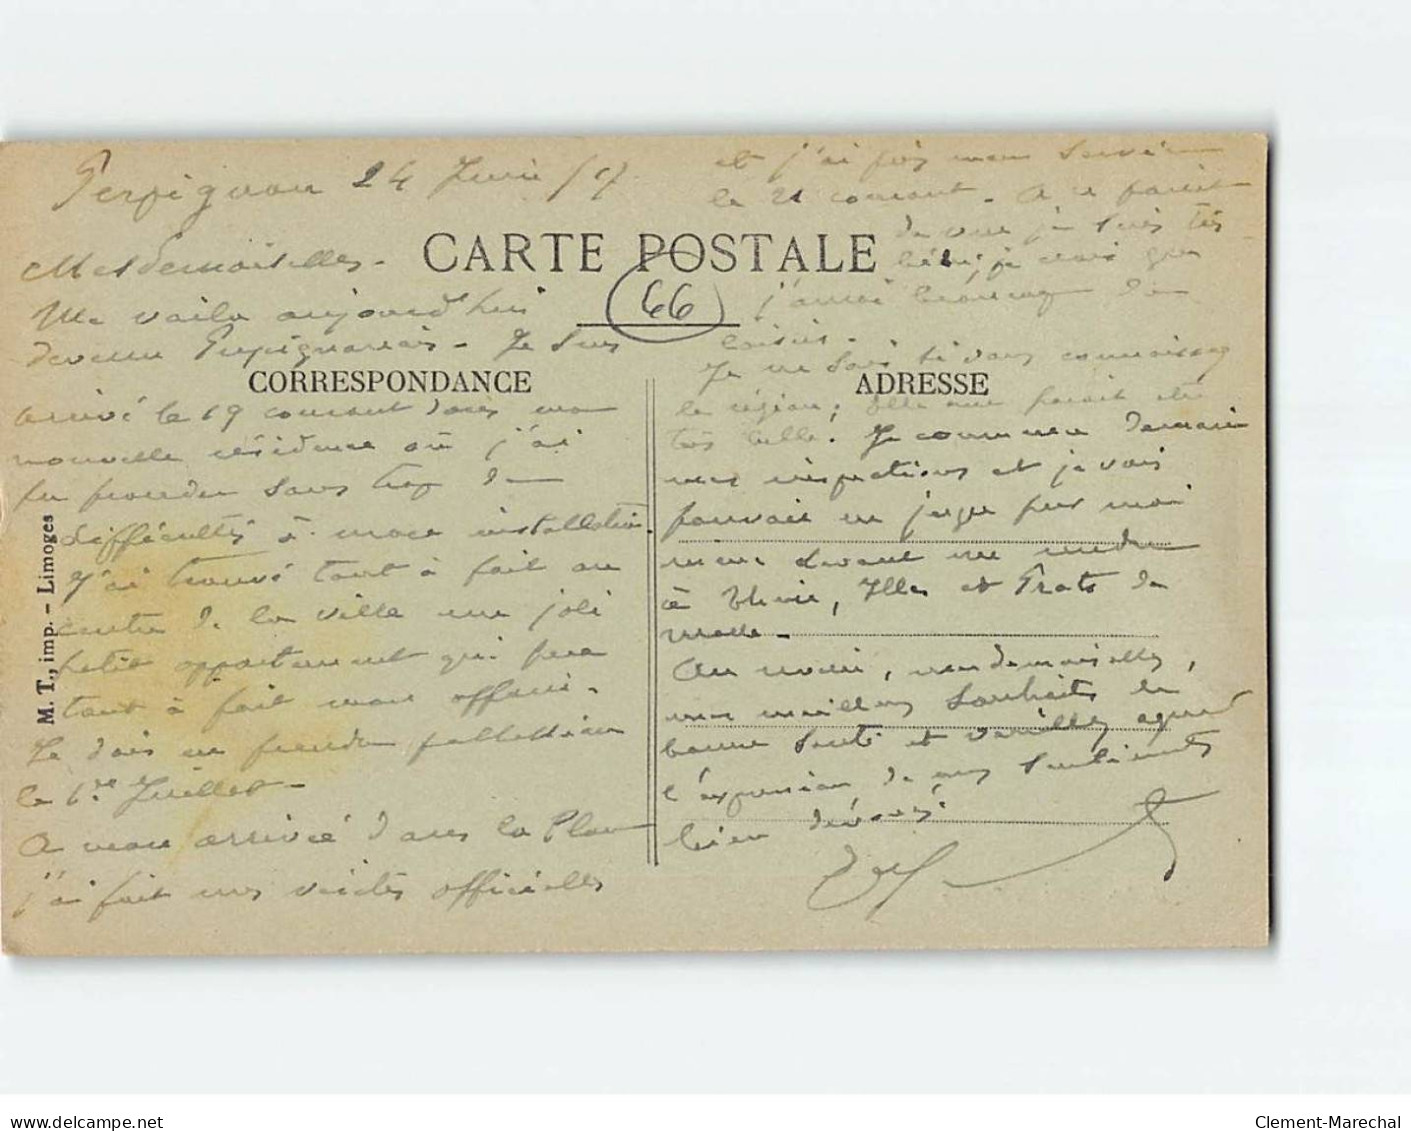 Perpignan 24 Juin 17
Mesdemoiselles.
CARTE POSTALE
66
Me voila aujourd'hui
devenu Perpignanais. Je suis
CORRESPONDANCE
arrivé le 19 courant dans ma
nouvelle résidence où j'ai
pu procéder sans trop de
difficultés à mon installation.
J'ai trouvé tout à fait au
centre de la ville un joli
petit appartement qui fera
tout à fait mon affaire.
Je dois en prendre possession
le 1er Juillet.
A mon arrivée dans la Place
j'ai fait mes visites officielles
et j'ai pris mon service
le 21 courant. A ce point
de vue je suis très
bien; je crois que
j'aurai beaucoup de
loisirs.
Je ne sais si vous connaissez
ADRESSE
la région; elle me parait être
très belle. Je commence demain
mes inspections et je vais
pouvoir en juger par moi
même devant me rendre
à Thuir, Ille et Prats de
Mollo.
Au revoir, mesdemoiselles,
mes meilleurs souhaits de
bonne santé et veuillez agréer
l'expression de mes sentiments
bien dévoués
M. T., imp. - Limoges
Clement-Marechal
www.delcampe.net